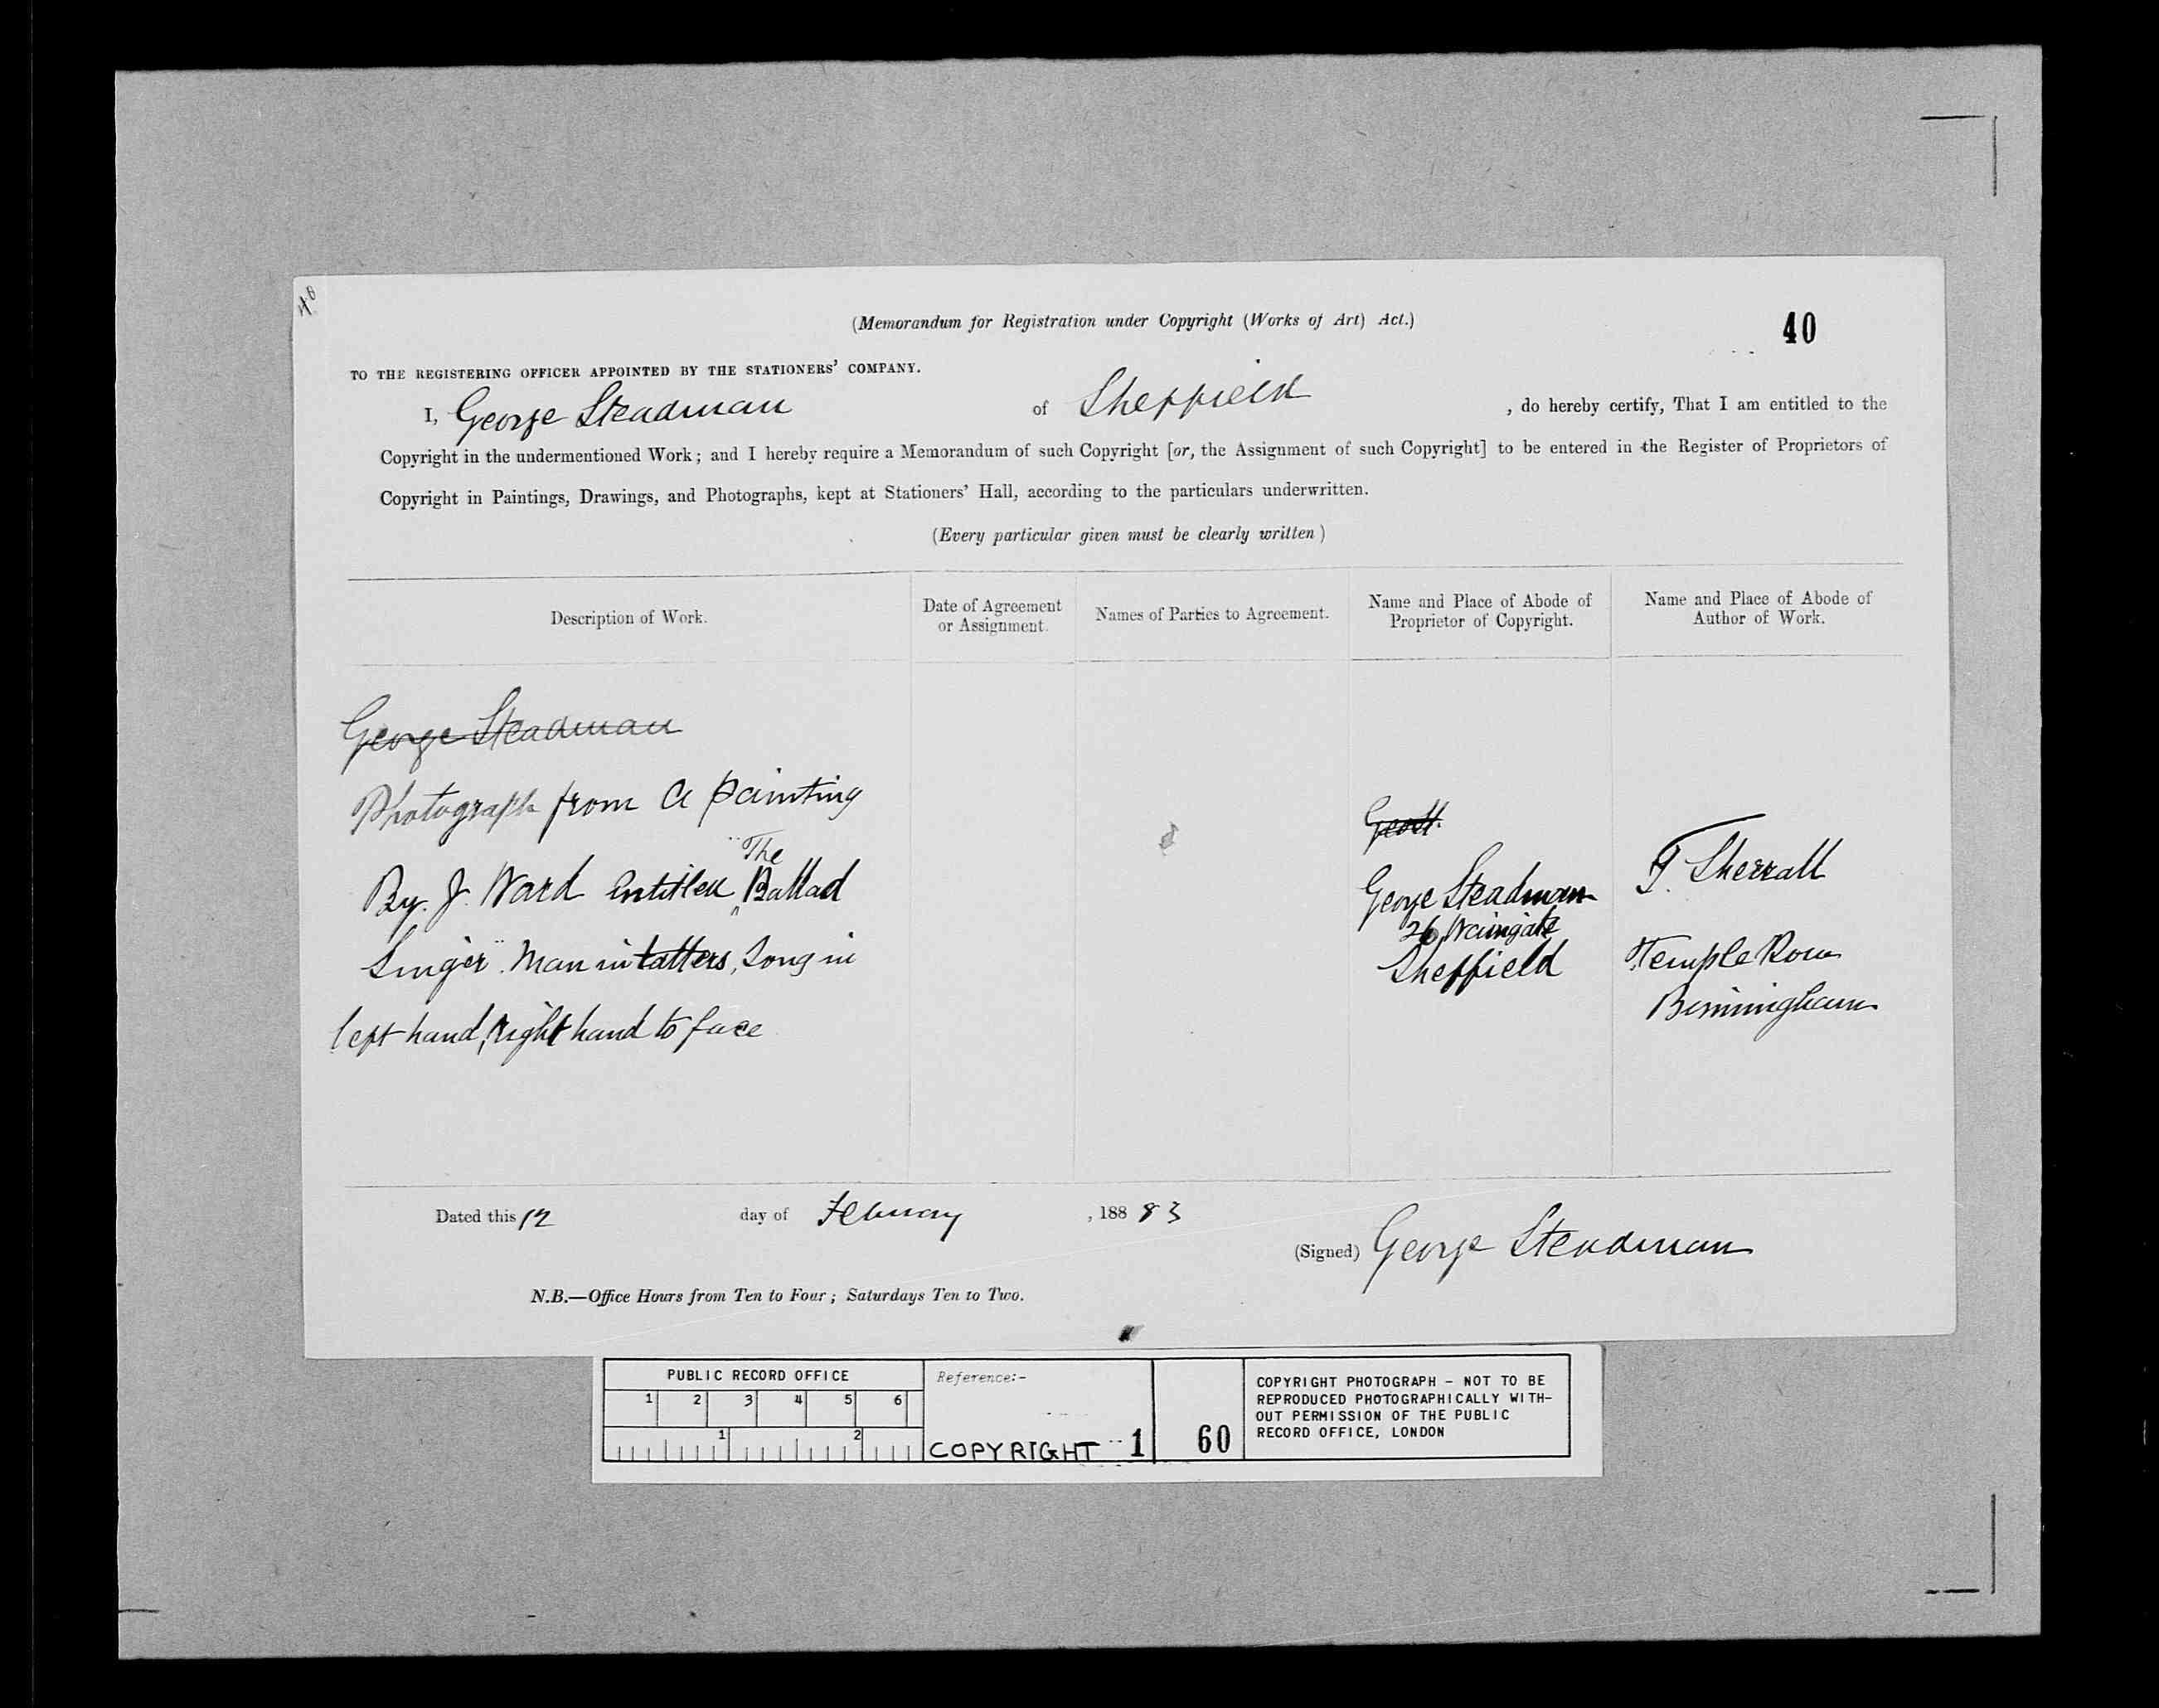 40
(Memorandum for Registration under Copyright (Works of Art) Act.)
40
TO THE REGISTERING OFFICER APPOINTED BY THE STATIONERS' COMPANY.
I, George Steadman of Sheffield , do hereby certify, That I am entitled to the
Copyright in the undermentioned Work; and I hereby require a Memorandum of such Copyright [or, the Assignment of such Copyright] to be entered in the Register of Proprietors of
Copyright in Paintings, Drawings, and Photographs, kept at Stationers' Hall, according to the particulars underwritten.
(Every particular given must be clearly written)
Description of Work.
Date of Agreement
or Assignment.
Names of Parties to Agreement.
Name and Place of Abode of
Proprietor of Copyright.
Name and Place of Abode of
Author of Work.
George Steadman
Photograph from a painting
By. J. Ward Entitled "The Ballad
Singer". Man in tatters, Song in
left hand, right hand to face
George Steadman
26 Waingate
Sheffield
Sherratt
Temple Row
Birmingham
Dated this 12 day of February , 188 83
(Signed) George Steadman
N.B.—Office Hours from Ten to Four; Saturdays Ten to Two.
PUBLIC RECORD OFFICE
1 2 3 4 5 6
1 2
Reference:-
COPYRIGHT 1
60
COPYRIGHT PHOTOGRAPH - NOT TO BE
REPRODUCED PHOTOGRAPHICALLY WITH-
OUT PERMISSION OF THE PUBLIC
RECORD OFFICE, LONDON